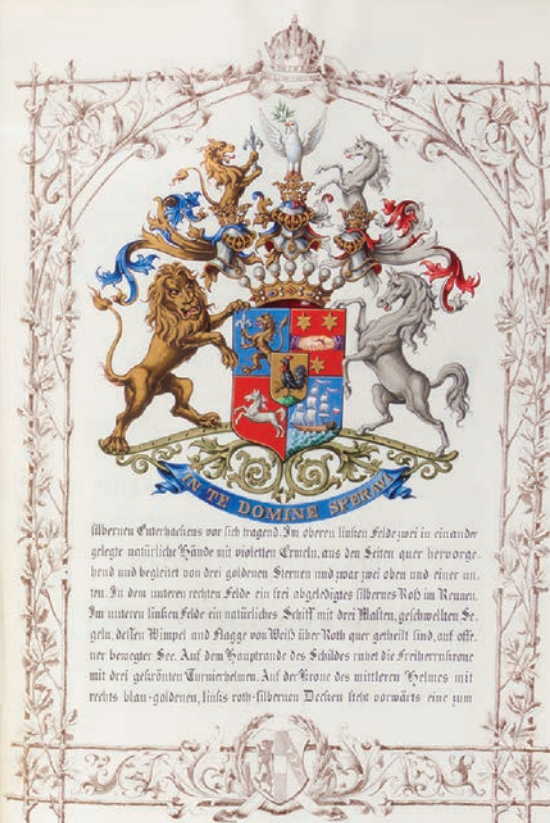 IN TE DOMINE SPERAVI
silbernen Enterhackens vor sich tragend. Im oberen linken Felde zwei in einander
gelegte natürliche Hände mit violetten Ermeln, aus den Seiten quer hervorge-
hend und begleitet von drei goldenen Sternen und zwar zwei oben und einer un-
ten. In dem unteren rechten Felde ein frei abgeledigtes silbernes Roß im Rennen.
Im unteren linken Felde ein natürliches Schiff mit drei Masten, geschwellten Se-
geln, dessen Wimpel und Flagge von Weiß über Roth quer getheilt sind, auf offe-
ner bewegter See. Auf dem Hauptrande des Schildes ruhet die Freiherrnkrone
mit drei gekrönten Turnierhelmen. Auf der Krone des mittleren Helmes mit
rechts blau-goldenen, links roth-silbernen Decken steht vorwärts eine zum